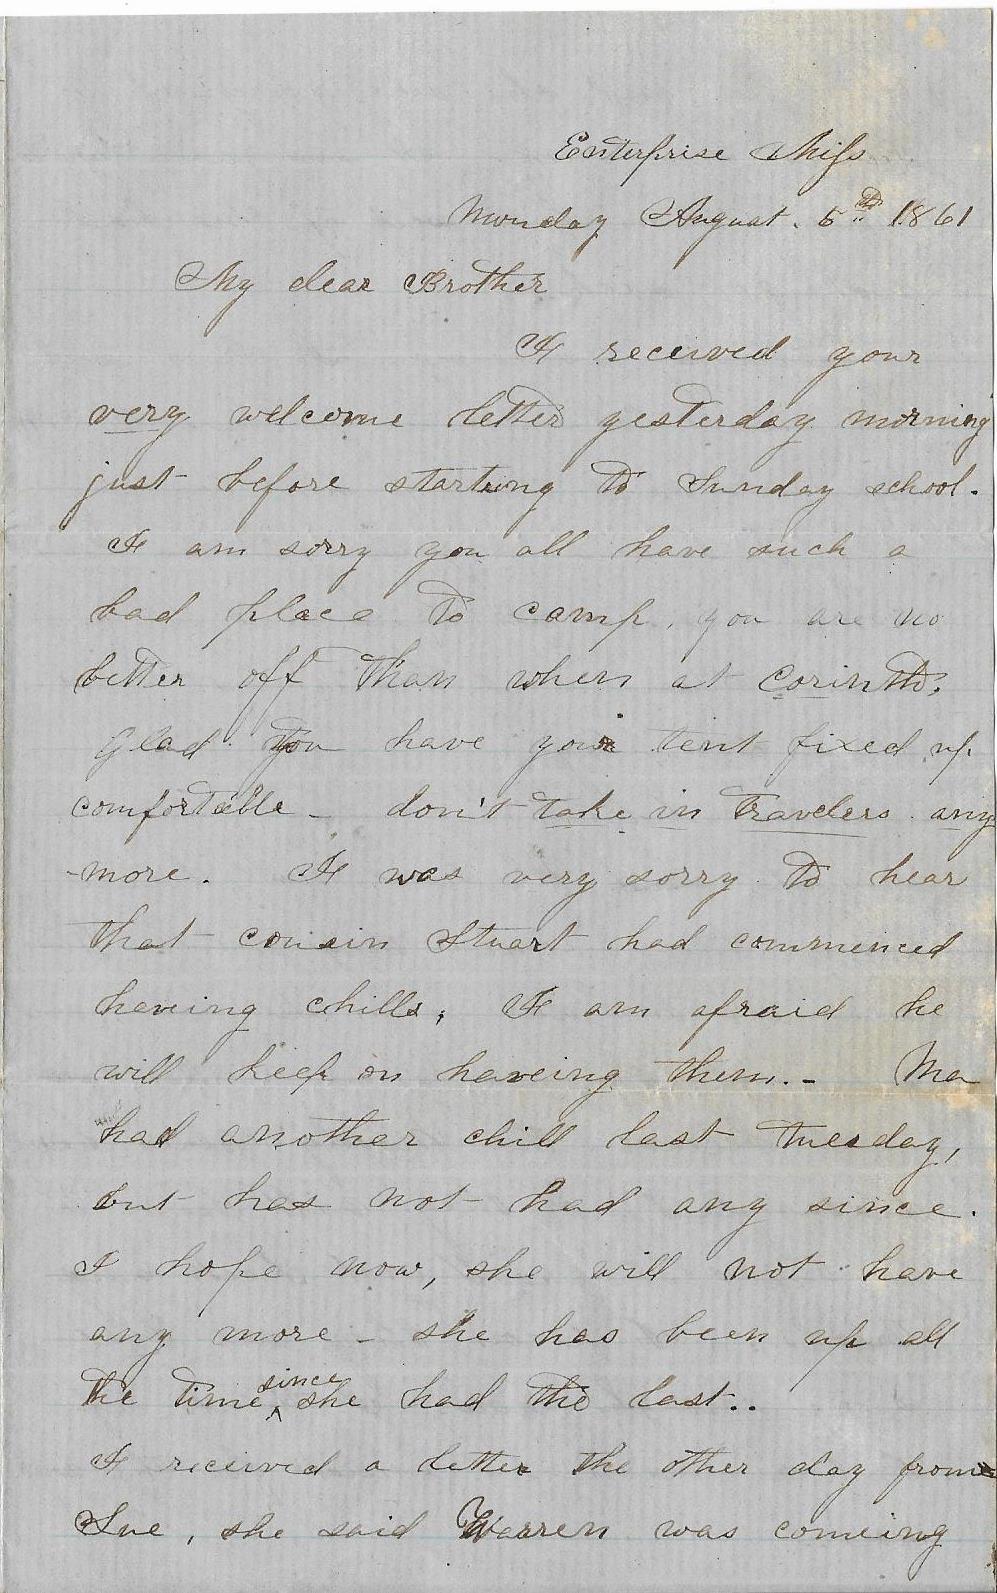 Enterprise Miss
Monday August. 5th 1861
My dear Brother
I received your
very welcome letter yesterday morning
just before starting to Sunday school.
I am sorry you all have such a
bad place to camp, you are no
better off than when at Corinth,
Glad you have your tent fixed up
comfortable - don't take in Travelers any
-more. I was very sorry to hear
that cousin Stuart had commenced
haveing chills; I am afraid he
will keep on haveing them.- Ma
had another chill last Tuesday,
but has not had any since.
I hope now, she will not have
any more - she has been up all
the time since she had the last..
I received a letter the other day from
Sue, she said Warren was comeing